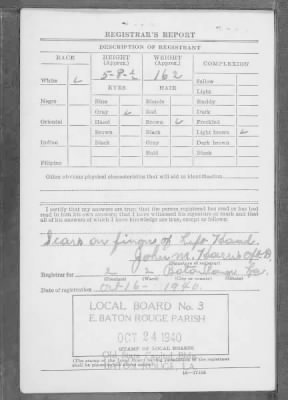 REGISTRAR'S REPORT
DESCRIPTION OF REGISTRANT
RACE HEIGHT (Approx.) WEIGHT (Approx.) COMPLEXION
5-8 162
White Sallow
EYES HAIR Light
Negro Blue Blonde Ruddy
Gray Red Dark
Oriental Hazel Brown Freckled
Brown Black Light brown
Indian Black Gray Dark brown
Bald Black
Filipino
Other obvious physical characteristics that will aid in identification
I certify that my answers are true; that the person registered has read or has had
read to him his own answers; that I have witnessed his signature or mark and that
all of his answers of which I have knowledge are true, except as follows:
Scar on finger of Left Hand.
John M. Harris
(Signature of registrar)
Registrar for 2 2 Baton Rouge La.
(Precinct) (Ward) (City or county) (State)
Date of registration Oct-16- 1940.
LOCAL BOARD No. 3
E. BATON ROUGE PARISH
OCT 24 1940
STAMP OF LOCAL BOARD
Old State Capitol Bldg.
(The stamp of the Local Board having jurisdiction of the registrant
shall be placed in the above space)
BATON ROUGE, LA.
16-17105